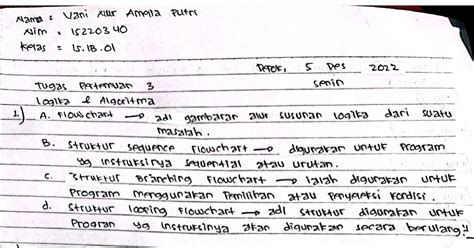 Nama : Vani Nur Amelia Putri
Nim : 15220340
Kelas : 15.1B.01
Depok, 5 Des 2022
Tugas Pertemuan 3 Senin
Logika & Algoritma
1.) A. Flowchart → adl gambaran alur susunan logika dari suatu
masalah.
B. Struktur sequence Flowchart → digunakan untuk program
yg instruksinya sequential atau urutan.
c. Struktur Branching Flowchart → ialah digunakan untuk
Program menggunakan Pemilihan atau Penyeleksi Kondisi.
d. Struktur looping Flowchart → adl struktur digunakan untuk
Program yg instruksinya akan digunakan secara berulang!!